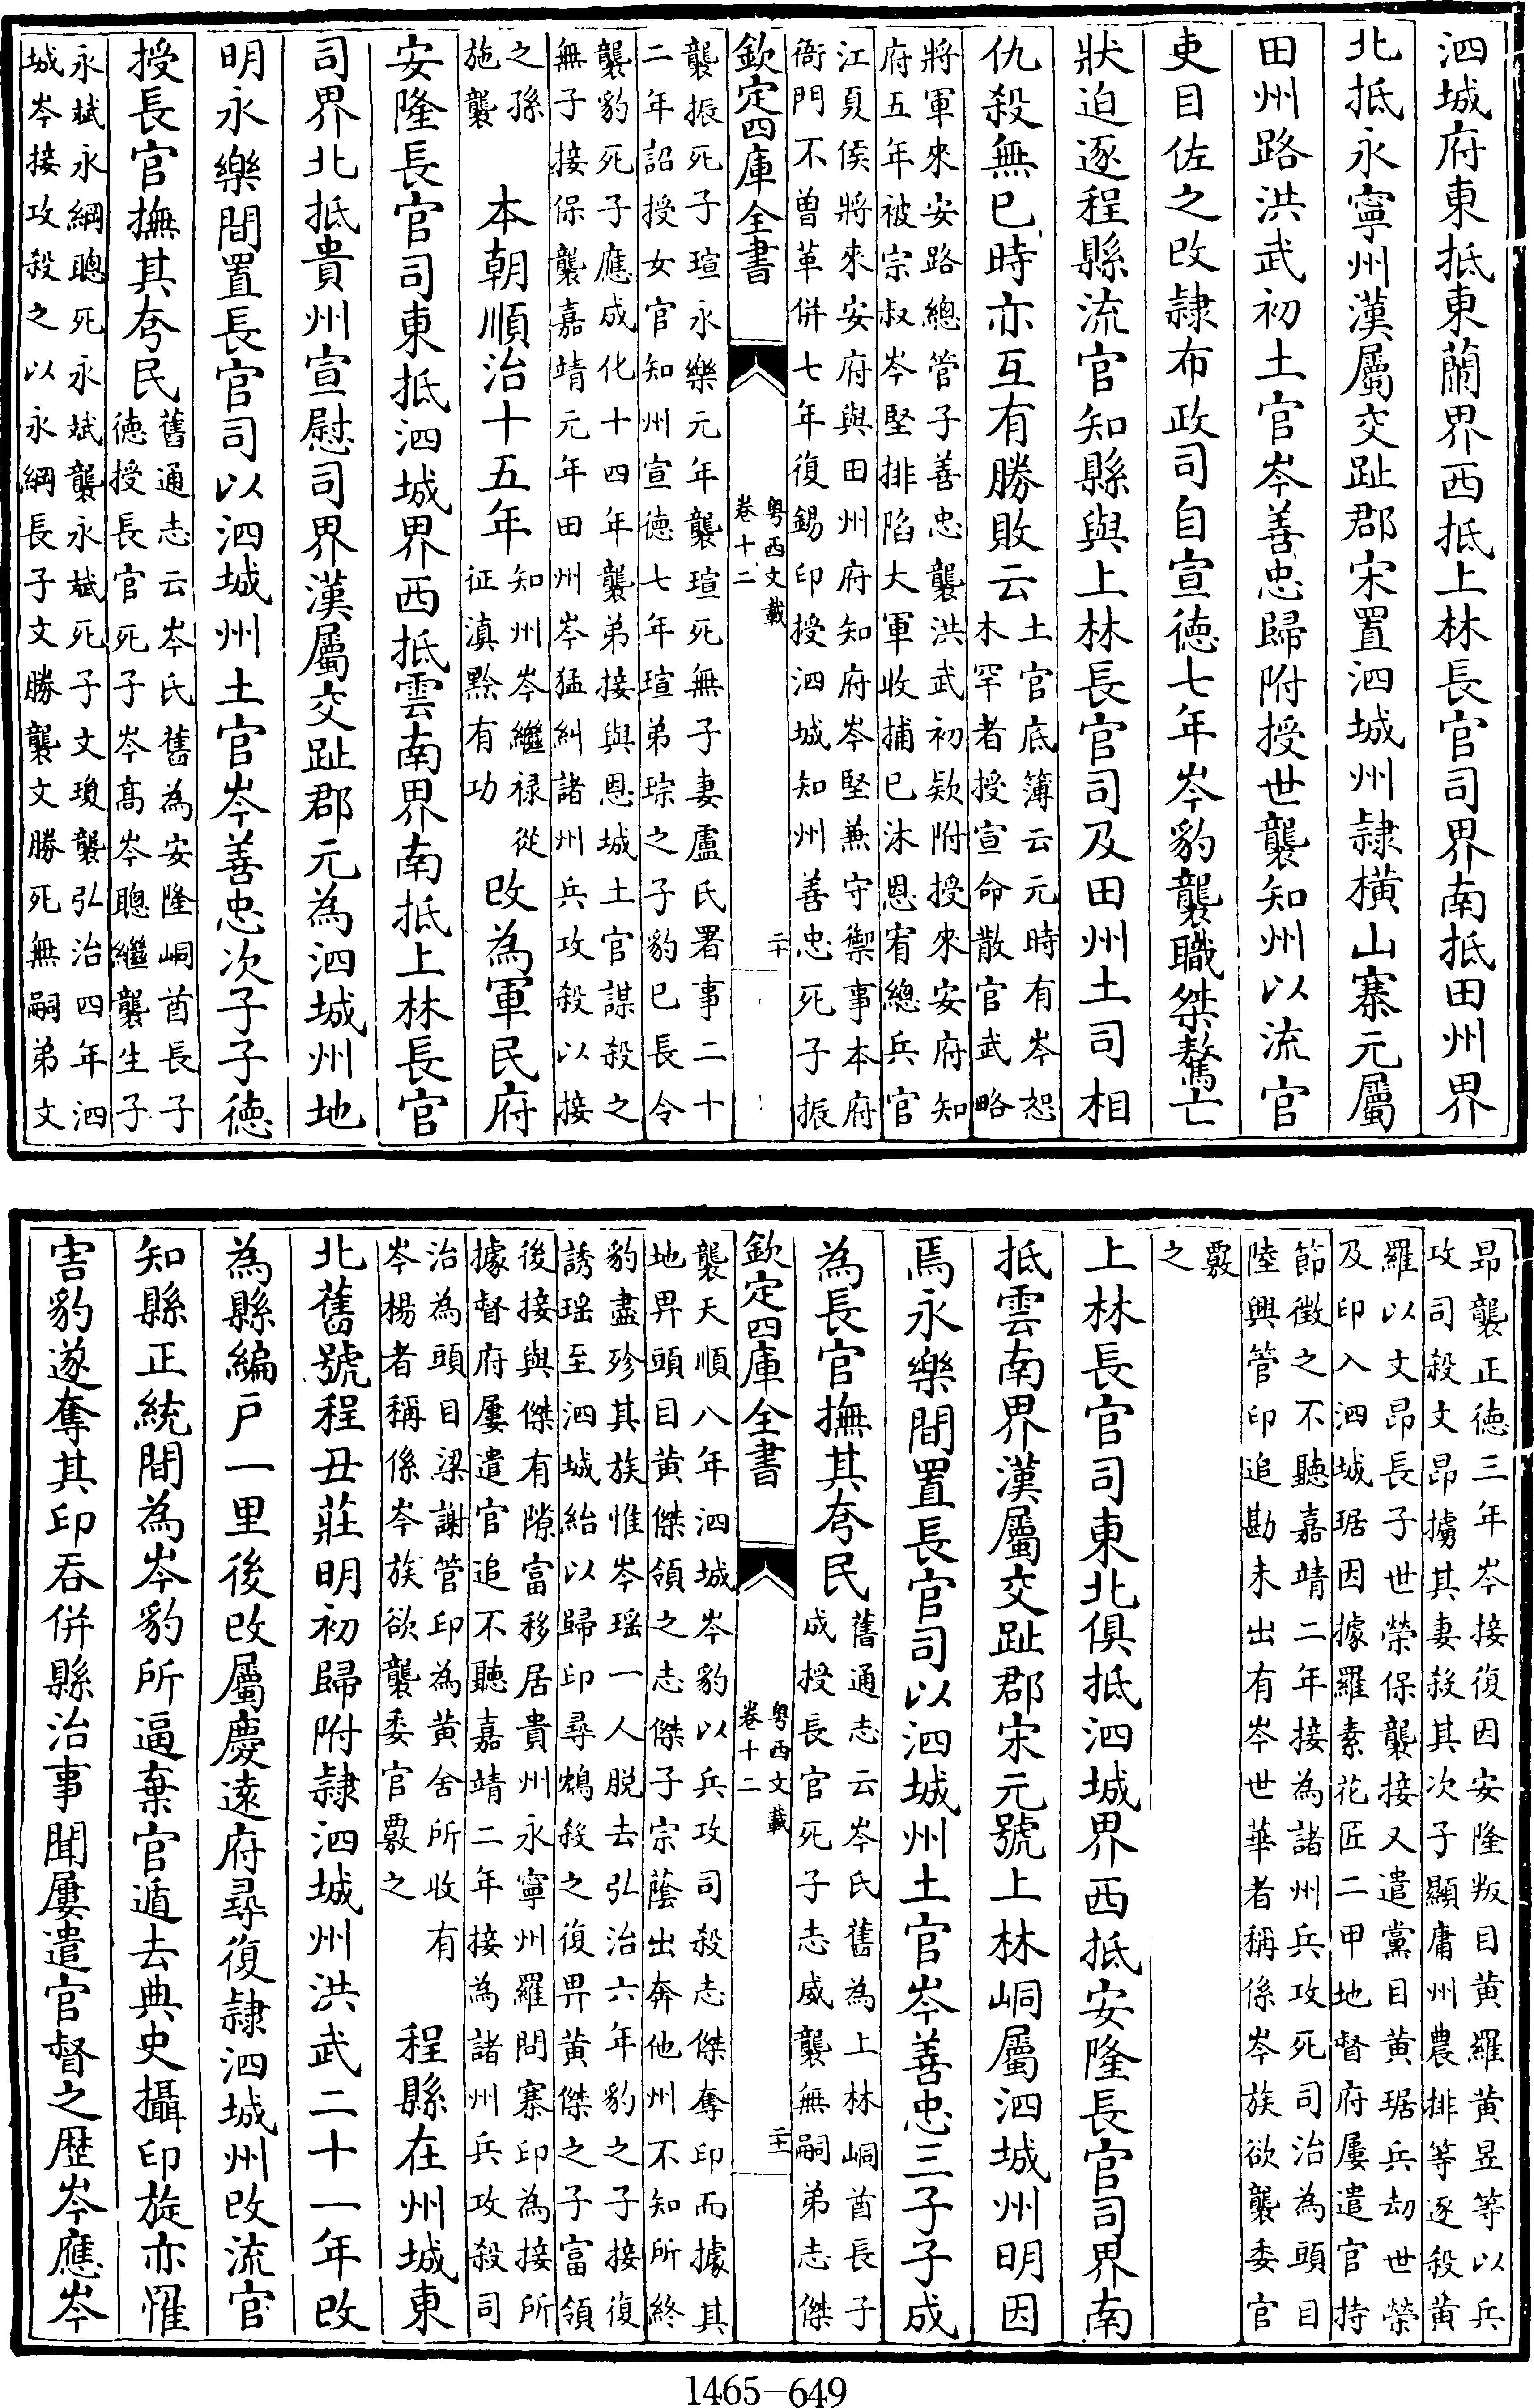 泗城府東抵東蘭界西抵上林長官司界南抵田州界
北抵永寧州漢屬交趾郡宋置泗城州隷横山寨元屬
田州路洪武初土官岑善忠歸附授世襲知州以流官
吏目佐之改隷布政司自宣徳七年岑豹襲職桀驁亡
狀迫逐程縣流官知縣與上林長官司及田州土司相
仇殺無已時亦互有勝敗云
土官底簿云元時有岑恕
木罕者授宣命散官武略
將軍來安路總管子善忠襲洪武初欵附授來安府知
府五年被宗叔岑堅排陷大軍收捕已沐恩宥總兵官
江夏侯將來安府與田州府知府岑堅兼守禦事本府
衙門不曾革併七年復錫印授泗城知州善忠死子振
欽定四庫全書
粤西文載
卷十二
二十
襲振死子瑄永樂元年襲瑄死無子妻盧氏署事二十
二年詔授女官知州宣徳七年瑄弟琮之子豹已長令
襲豹死子應成化十四年襲弟接與恩城土官謀殺之
無子接保襲嘉靖元年田州岑猛糾諸州兵攻殺以接
之孫
施襲
本朝順治十五年
知州岑繼禄從
征滇黔有功
改為軍民府
安隆長官司東抵泗城界西抵雲南界南抵上林長官
司界北抵貴州宣慰司界漢屬交趾郡元為泗城州地
明永樂間置長官司以泗城州土官岑善忠次子子徳
授長官撫其夸民
舊通志云岑氏舊為安隆峒酋長子
徳授長官死子岑髙岑聰繼襲生子
永斌永綱聰死永斌襲永斌死子文瓊襲弘治四年泗
城岑接攻殺之以永綱長子文勝襲文勝死無嗣弟文
昂襲正徳三年岑接復因安隆叛目黄羅黄昱等以兵
攻司殺文昂擄其妻殺其次子顯庸州農排等逐殺黄
羅以文昂長子世榮保襲接又遣黨目黄琚兵刧世榮
及印入泗城琚因據羅素花匠二甲地督府屢遣官持
節徵之不聽嘉靖二年接為諸州兵攻死司治為頭目
陸興管印追勘未出有岑世華者稱係岑族欲襲委官
覈
之
上林長官司東北俱抵泗城界西抵安隆長官司界南
抵雲南界漢屬交趾郡宋元號上林峒屬泗城州明因
焉永樂間置長官司以泗城州土官岑善忠三子子成
為長官撫其夸民
舊通志云岑氏舊為上林峒酋長子
成授長官死子志威襲無嗣弟志傑
欽定四庫全書
粤西文載
卷十二
二十一
襲天順八年泗城岑豹以兵攻司殺志傑奪印而據其
地畀頭目黄傑領之志傑子宗蔭出奔他州不知所終
豹盡殄其族惟岑瑶一人脱去弘治六年豹之子接復
誘瑶至泗城紿以歸印尋鴆殺之復畀黄傑之子富領
後接與傑有隙富移居貴州永寧州羅問寨印為接所
據督府屢遣官追不聽嘉靖二年接為諸州兵攻殺司
治為頭目梁謝管印為黄舍所收有
岑楊者稱係岑族欲襲委官覈之
程縣在州城東
北舊號程丑莊明初歸附隷泗城州洪武二十一年改
為縣編户一里後改屬慶遠府尋復隷泗城州改流官
知縣正統間為岑豹所逼棄官遁去典史攝印旋亦懼
害豹遂奪其印吞併縣治事聞屢遣官督之歴岑應岑
1465-649